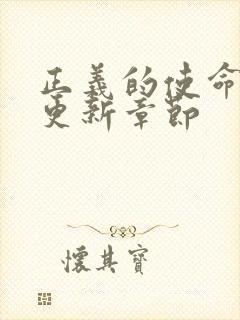 正義的使命
更新章節
懷其寶